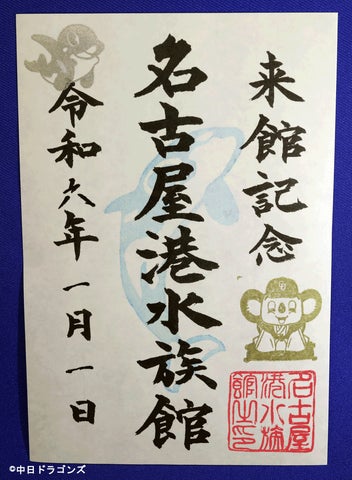 来館記念
名古屋港水族館
令和六年一月一日
名古屋
港水族
館之印
©中日ドラゴンズ